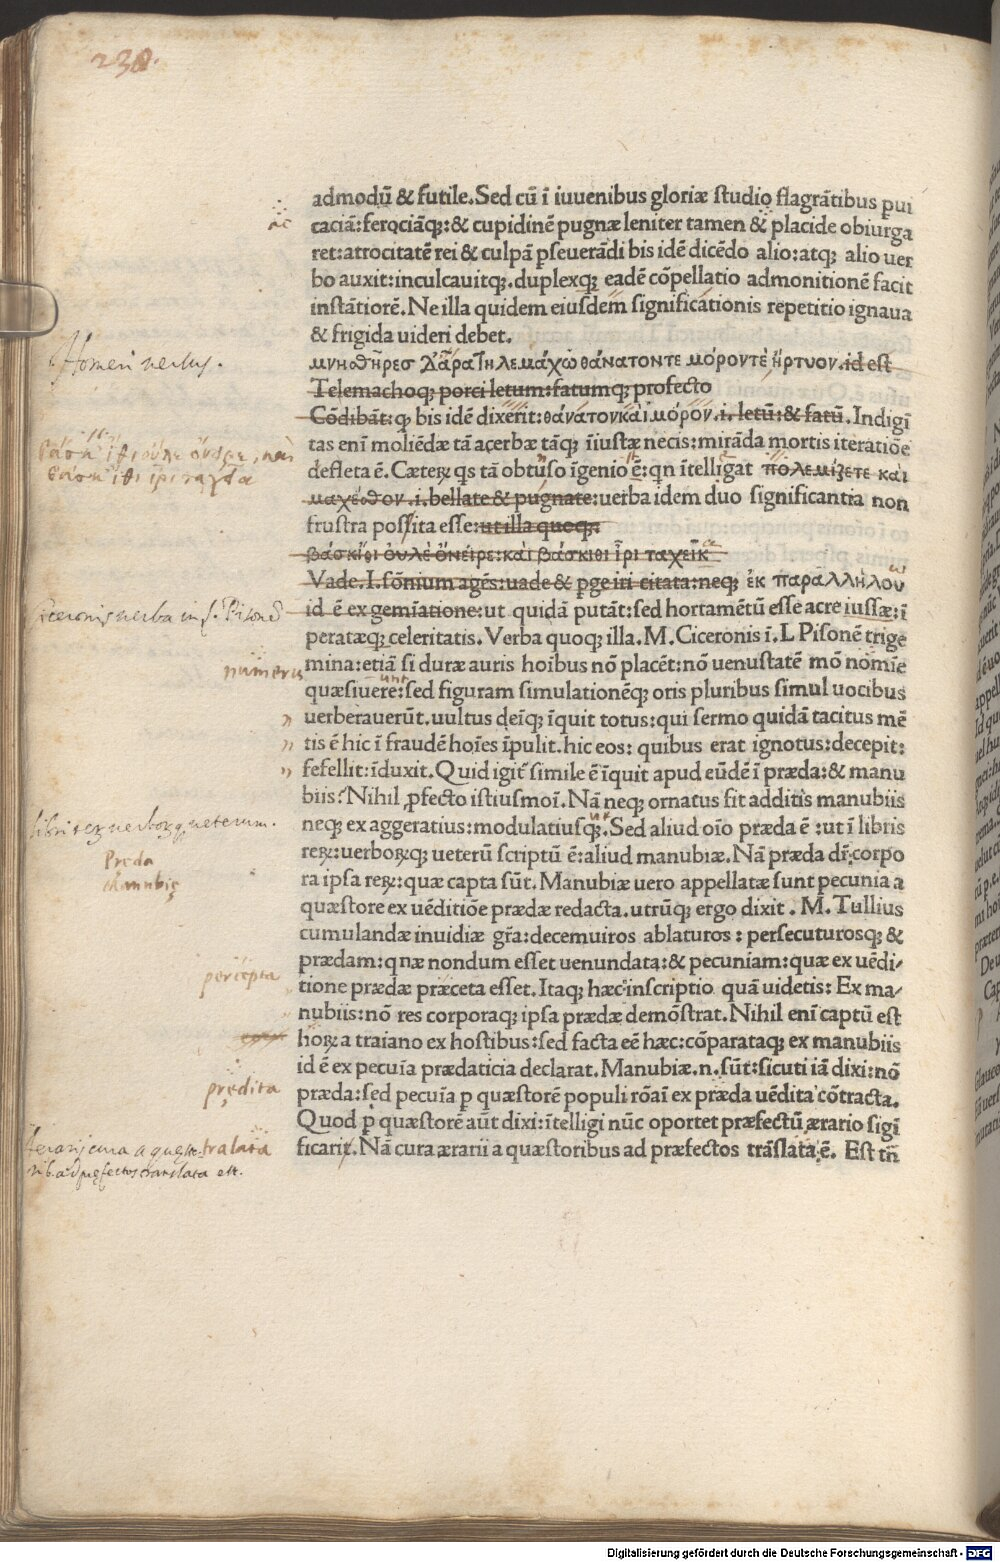 238.
admodū & futile. Sed cū ī iuuenibus gloriæ ſtudio flagrātibus pui
ac
caciā: ferociāq;: & cupidinē pugnæ leniter tamen & placide obiurga
ret: atrocitatē rei & culpā pſeuerādi bis idē dicēdo alio: atq; alio uer
bo auxit: inculcauitq;. duplexq; eadē cōpellatio admonitionē facit
inſtātiorē. Ne illa quidem eiuſdem ſignificationis repetitio ignaua
& frigida uideri debet.
Homeri uersus.
μνηςῆρεσ ἄρα τηλεμάχω θάνατοντε μόροντὲ ἤρτυον. id eſt
Telemachoq; porci letum: fatumq; profecto
Cōdibāt: q bis idē dixerit: θάνατον καὶ μόρον. i. letū: & fatū. Indigī
tas enī moliēdæ tā acerbæ tāq; īiuſtæ necis: mirāda mortis iteratiōe
defleta ē. Cæteꝝ qs tā obtuſo īgenio ē: qn ītelligat πολεμίζετε καὶ
μαχέσθον. i. bellate & pugnate: uerba idem duo ſignificantia non
fruſtra poſſita eſſe: ut illa quoq;:
βάσκιθι οὐλὲ ὄνειρε: καὶ βάσκιθι ἶρι ταχεῖα
Vade. I. ſōnium agēs: uade & pge iri citata: neq; ἐκ παραλλήλου
Ciceronis uerba in L. Pisonē
id ē ex gemiatione: ut quidā putāt: ſed hortamētū eſſe acre iuſſæ: ī
peratæq; celeritatis. Verba quoq; illa. M. Ciceronis ī. L Piſonē trige
numeris
mina: etiā ſi duræ auris hoībus nō placēt: nō uenuſtatē mō nomīe
quæſiuere: ſed figuram ſimulationēq; oris pluribus ſimul uocibus
uerberauerūt. uultus deīq; īquit totus: qui ſermo quidā tacitus mē
tis ē hic ī fraudē hoīes īpulit. hic eos: quibus erat ignotus: decepit:
fefellit: īduxit. Quid igit̃ ſimile ē īquit apud eūdē ī præda: & manu
biis? Nihil ꝓfecto iſtiuſmoī. Nā neq; ornatus fit additis manubiis
libri rerū uerborūq ueterum.
neq; ex aggeratius: modulatiuſq;. Sed aliud oīo præda ē: ut ī libris
Preda
reꝝ: uerboꝝq; ueterū ſcriptū ē: aliud manubiæ. Nā præda dr̄: corpo
Manubię
ra ipſa reꝝ: quæ capta ſūt. Manubiæ uero appellatæ ſunt pecunia a
quæſtore ex uēditiōe prædæ redacta. utrūq; ergo dixit. M. Tullius
cumulandæ inuidiæ gr̄a: decemuiros ablaturos: perſecuturosq; &
percepta
prædam: qnæ nondum eſſet uenundata: & pecuniam: quæ ex uēdi/
tione prædæ præceta eſſet. Itaq; hæc inſcriptio quā uidetis: Ex ma/
nubiis: nō res corporaq; ipſa prædæ demōſtrat. Nihil enī captū eſt
hoꝝ a traiano ex hoſtibus: ſed facta eē hæc: cōparataq; ex manubiis
id ē ex pecuīa prædaticia declarat. Manubiæ. n. ſūt: ſicuti iā dixi: nō
prędita
præda: ſed pecuīa p quæſtorē populi rōaī ex præda uēdita cōtracta.
Quod p quæſtorē aūt dixi: ītelligi nūc oportet præfectū ærario ſigī
tralata
ficarit. Nā cura ærarii a quæſtoribus ad præfectos trāſlata ē. Eſt tn̄
ęrarij cura a quęsto
rib. ad pręfectos translata est.
Digitalisierung gefördert durch die Deutsche Forschungsgemeinschaft - DFG